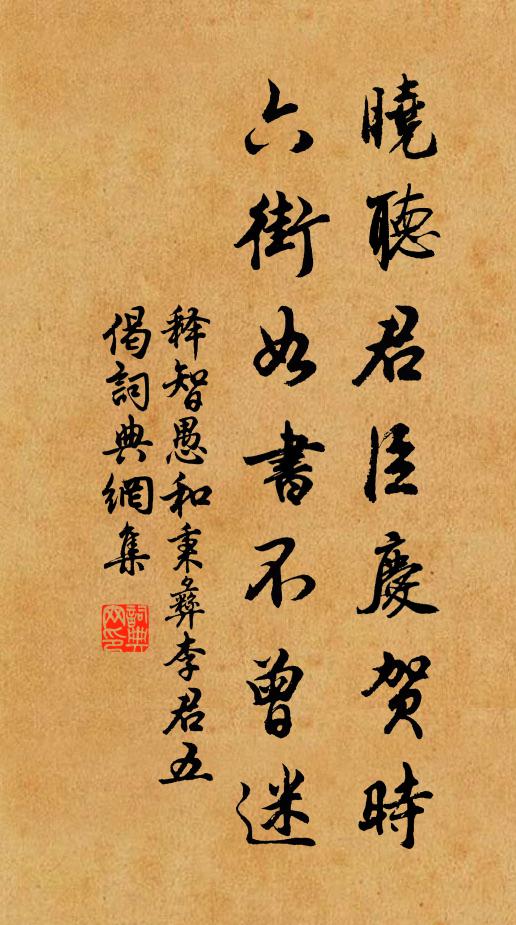 曉聽君臣慶賀時
六街如書不曾迷
释智愚和秉彝李君五
偈詞典網集
詞典